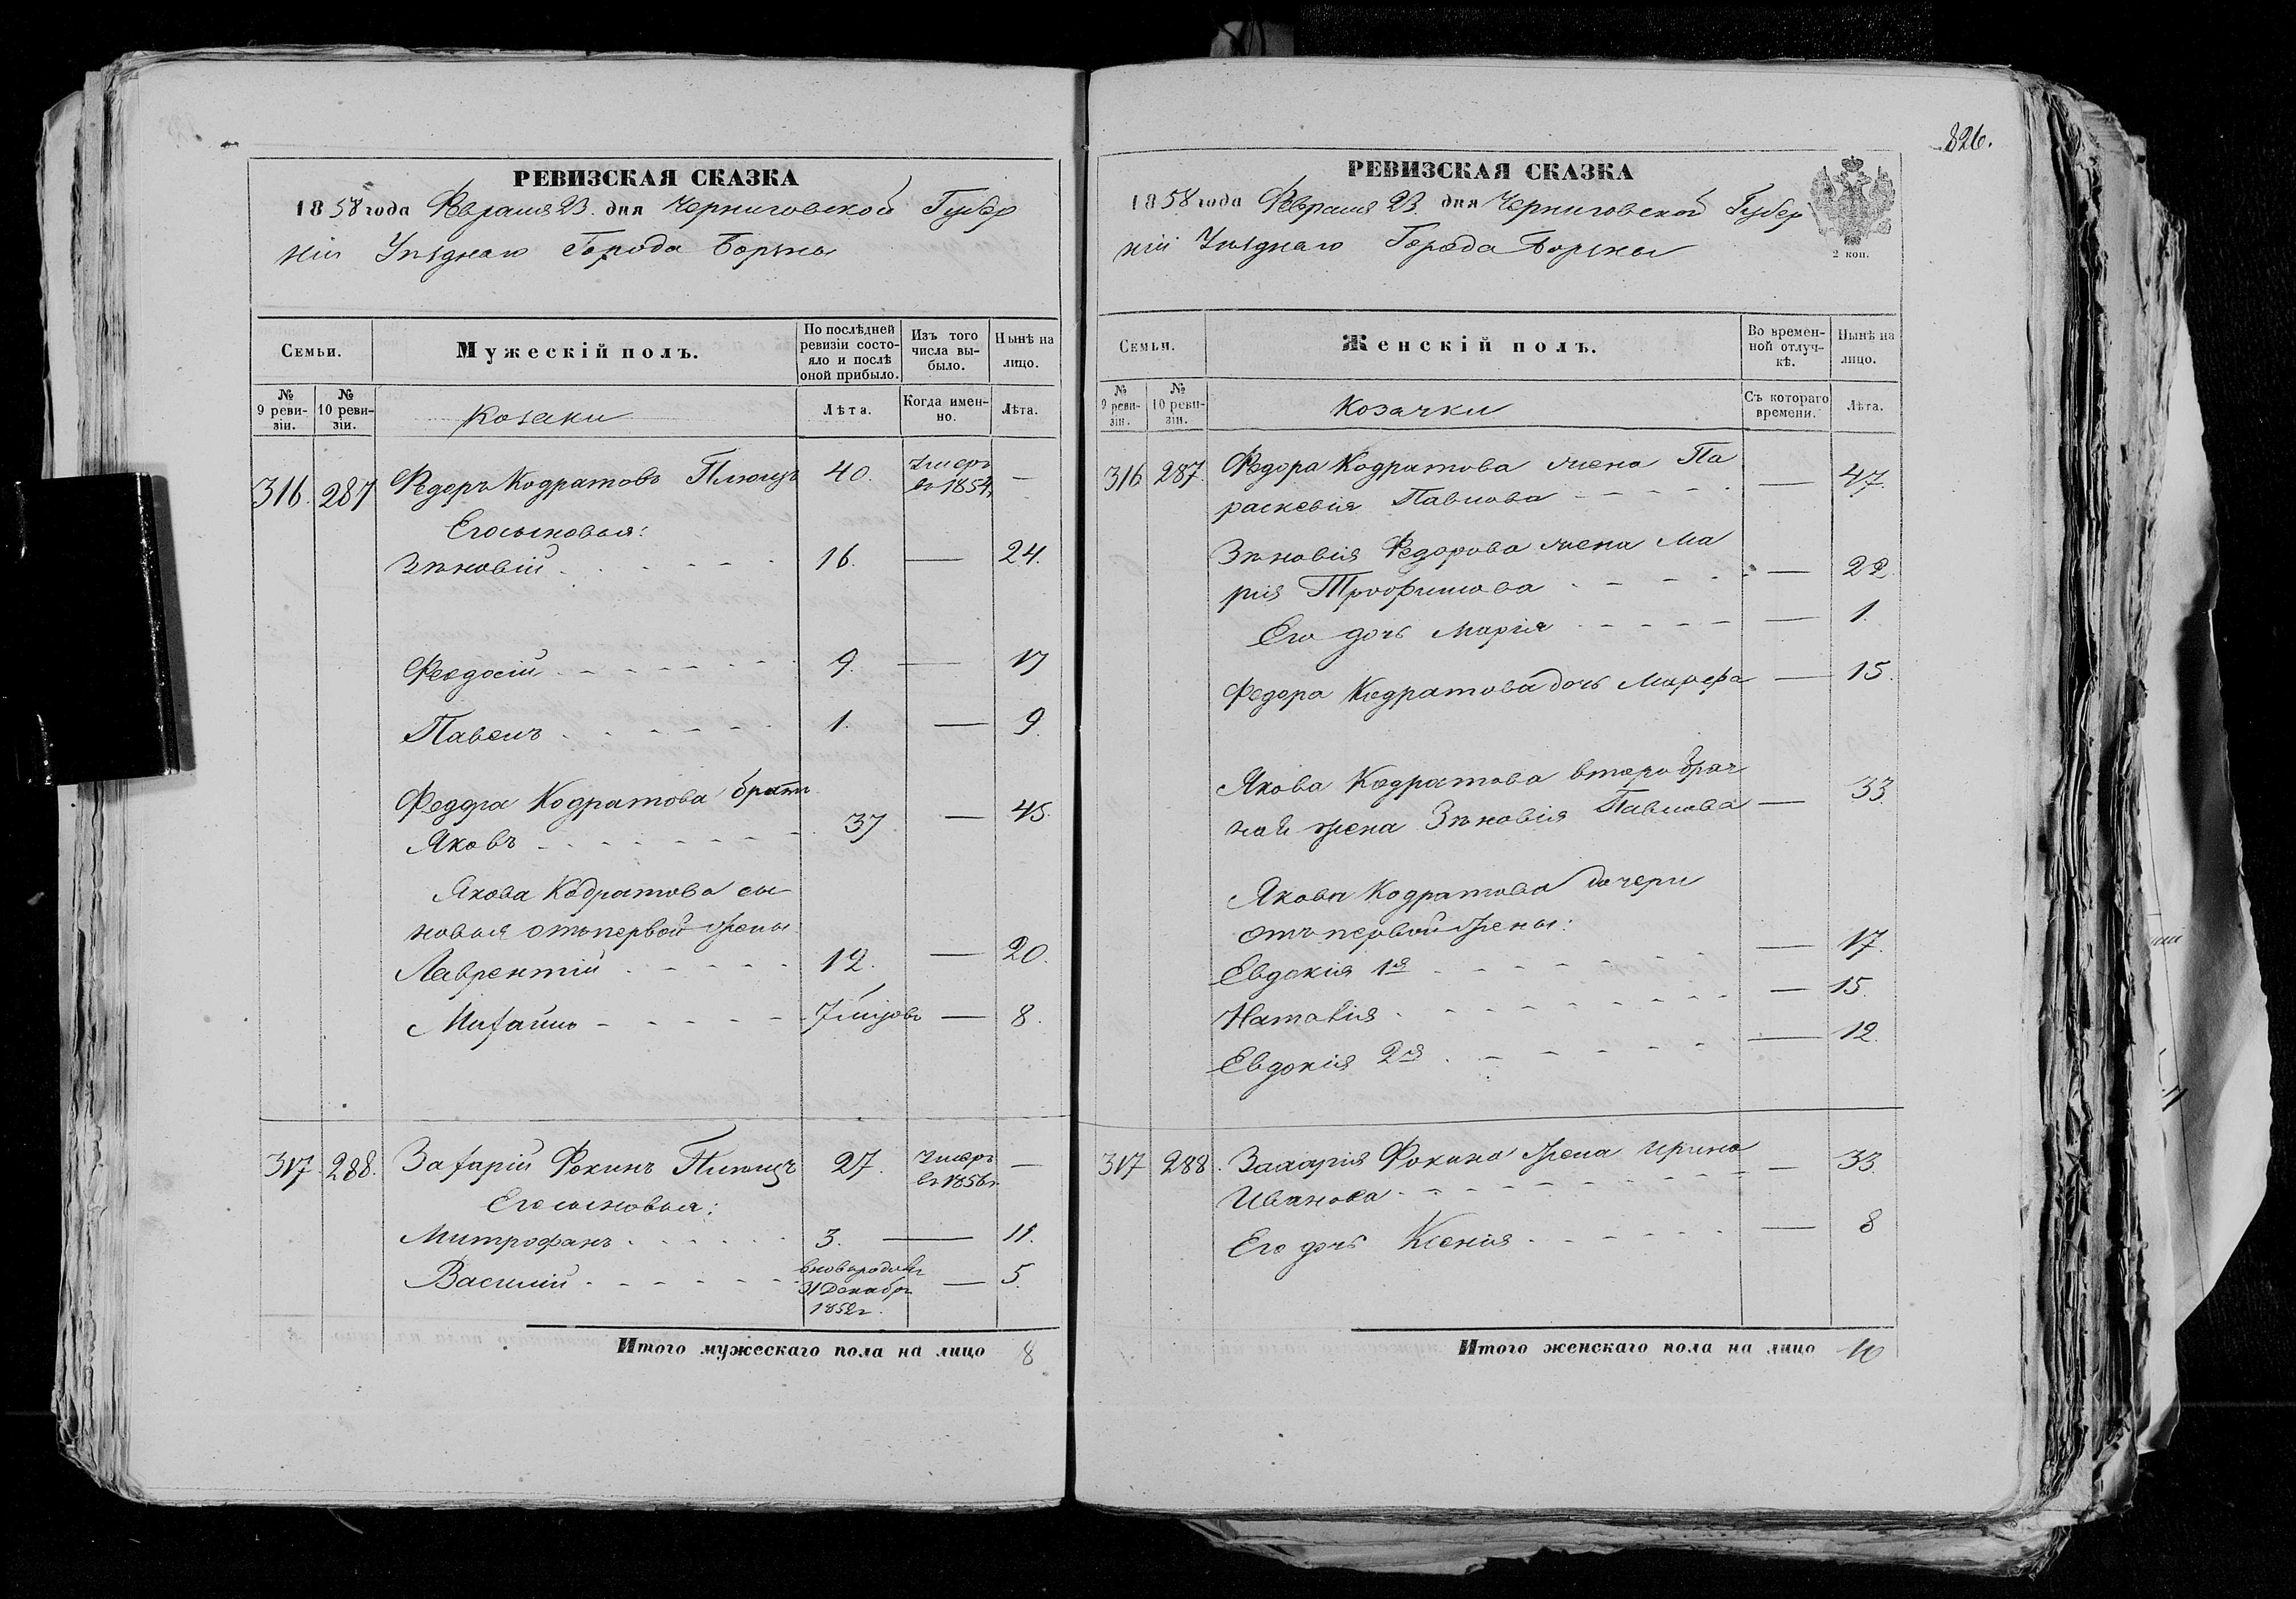 826.
РЕВИЗСКАЯ СКАЗКА
1858 года Февраля 23. дня Черниговской Губер
ніи Уѣзднаго Города Борзны
Семьи.
Мужескій полъ.
По послѣдней ревизіи состояло и послѣ оной прибыло.
Изъ того числа выбыло.
Нынѣ на лицо.
№ 9 ревизіи.
№ 10 ревизіи.
Козаки
Лѣта.
Когда именно.
Лѣта.
316. 287 Федоръ Кодратовъ Плющъ 40. Умеръ въ 1854г. —
Его сыновья:
Зѣновій 16. — 24.
Феодосій 9. — 17
Павелъ 1. — 9.
Федора Кодратова братъ
Яковъ 37 — 45.
Якова Кодратова сы
новья отъ первой жены:
Лаврентій 12. — 20.
Михаилъ 7 мѣсяцовъ — 8.
317. 288. Захарій Фокинъ Плющъ 27. Умеръ въ 1856г. —
Его сыновья:
Митрофанъ 3. — 11.
Василій вновь родил. 31 Декабря 1852г. — 5.
Итого мужескаго пола на лицо 8
РЕВИЗСКАЯ СКАЗКА
1858 года Февраля 23. дня Черниговской Губер
ніи Уѣзднаго Города Борзны
2 коп.
Семьи.
Женскій полъ.
Во временной отлучкѣ.
Нынѣ на лицо.
№ 9 ревизіи.
№ 10 ревизіи.
Козачки
Съ котораго времени.
Лѣта.
316 287. Федора Кодратова жена Па
раскевія Павлова — 47.
Зѣновія Федорова жена Ма
рія Трофимова — 22.
Его дочь Марія — 1.
Федора Кодратова дочь Марфа — 15.
Якова Кодратова второбрач
ная жена Зѣновія Павлова — 33.
Якова Кодратова дочери
отъ первой жены:
Евдокія 1я — 17.
Наталія — 15.
Евдокія 2я — 12.
317 288. Захарія Фокина жена Ирина
Иванова — 33.
Его дочь Ксенія — 8
Итого женскаго пола на лицо 10